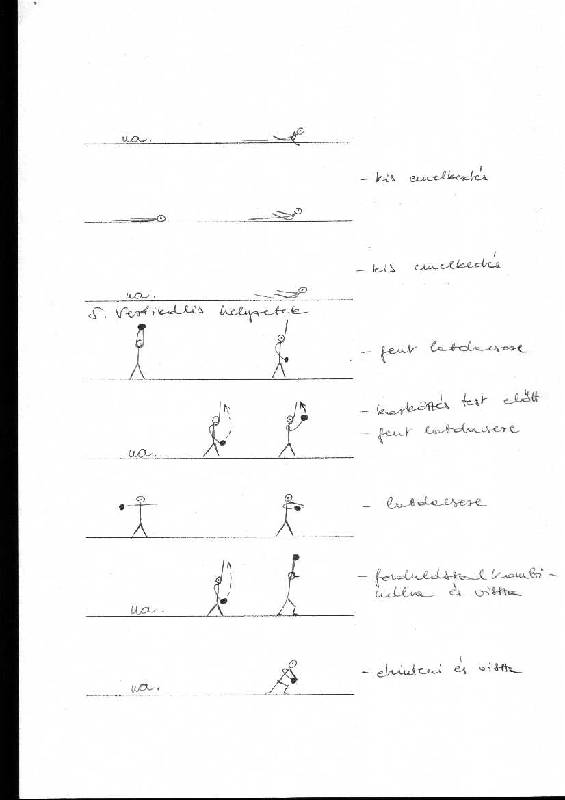 ua.
- kis emelkedés
- kis emelkedés
ua.
5. Vertikális helyzetek
- fent labdacsere
- karkörzés test előtt
- fent labdacsere
ua.
- labdacsere
- fordulással kombi-
nálva és vissza
ua.
- érinteni és vissza
ua.